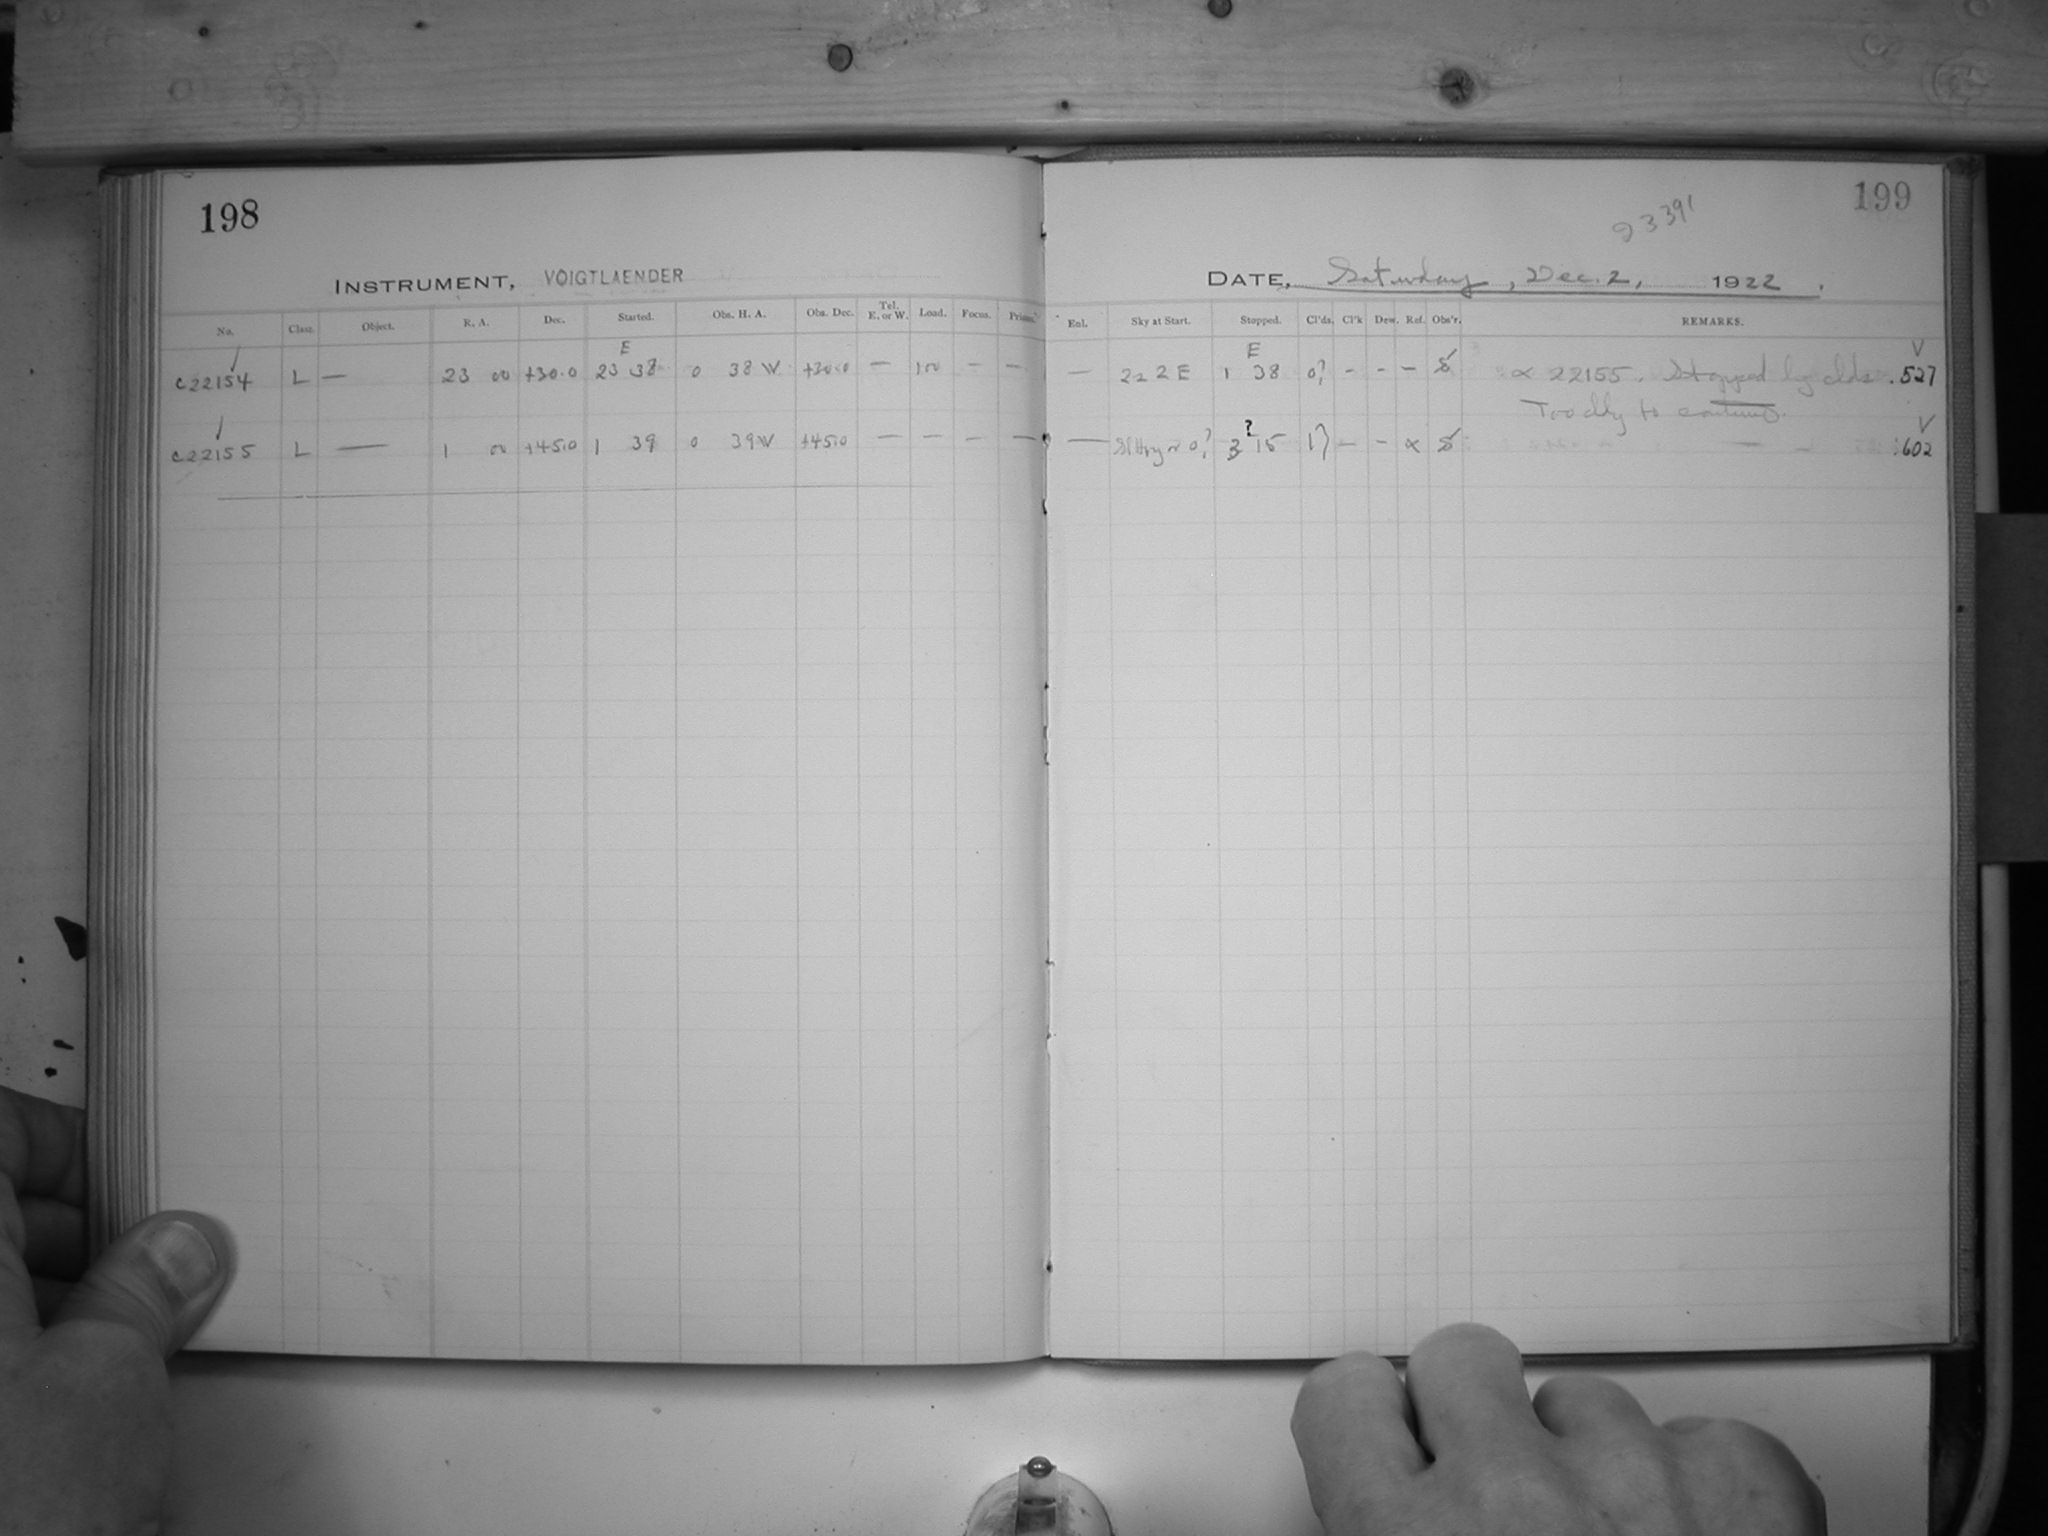 198
INSTRUMENT, VOIGTLAENDER
No. Class. Object. R. A. Dec. Started. Obs. H. A. Obs. Dec. Tel. E. or W. Load. Focus. Prisms.
E
c22154 L — 23 00 +30.0 23 38 0 38 W +30.0 — 100 — —
c22155 L — 1 00 +45.0 1 39 0 39 W +45.0 — — — —
199
23391
DATE, Saturday, Dec. 2, 1922.
Enl. Sky at Start. Stopped. Cl'ds. Cl'k Dew. Ref. Obs'r. REMARKS.
E V
— 222 E 1 38 0? - - - ∝ 22155. Stopped by clds. .527
Too cldy to continue.
? V
— 0? 3 15 1? — - ∝ .602